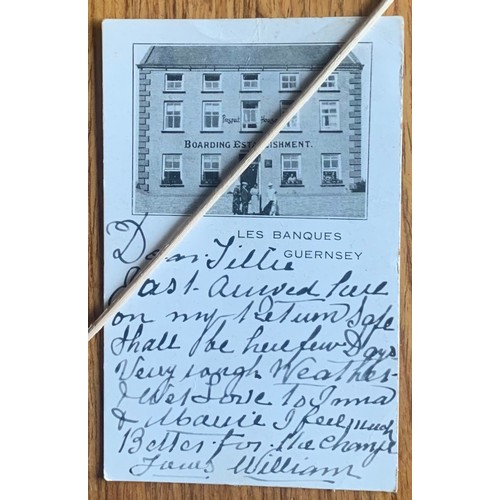 House
BOARDING ESTABLISHMENT.
LES BANQUES
GUERNSEY
Dear Tillie
Just Arrived here
on my Return Safe
Shall be here few Days
Very rough Weather
& Best Love to
& I feel much
Better for the change
Yours William